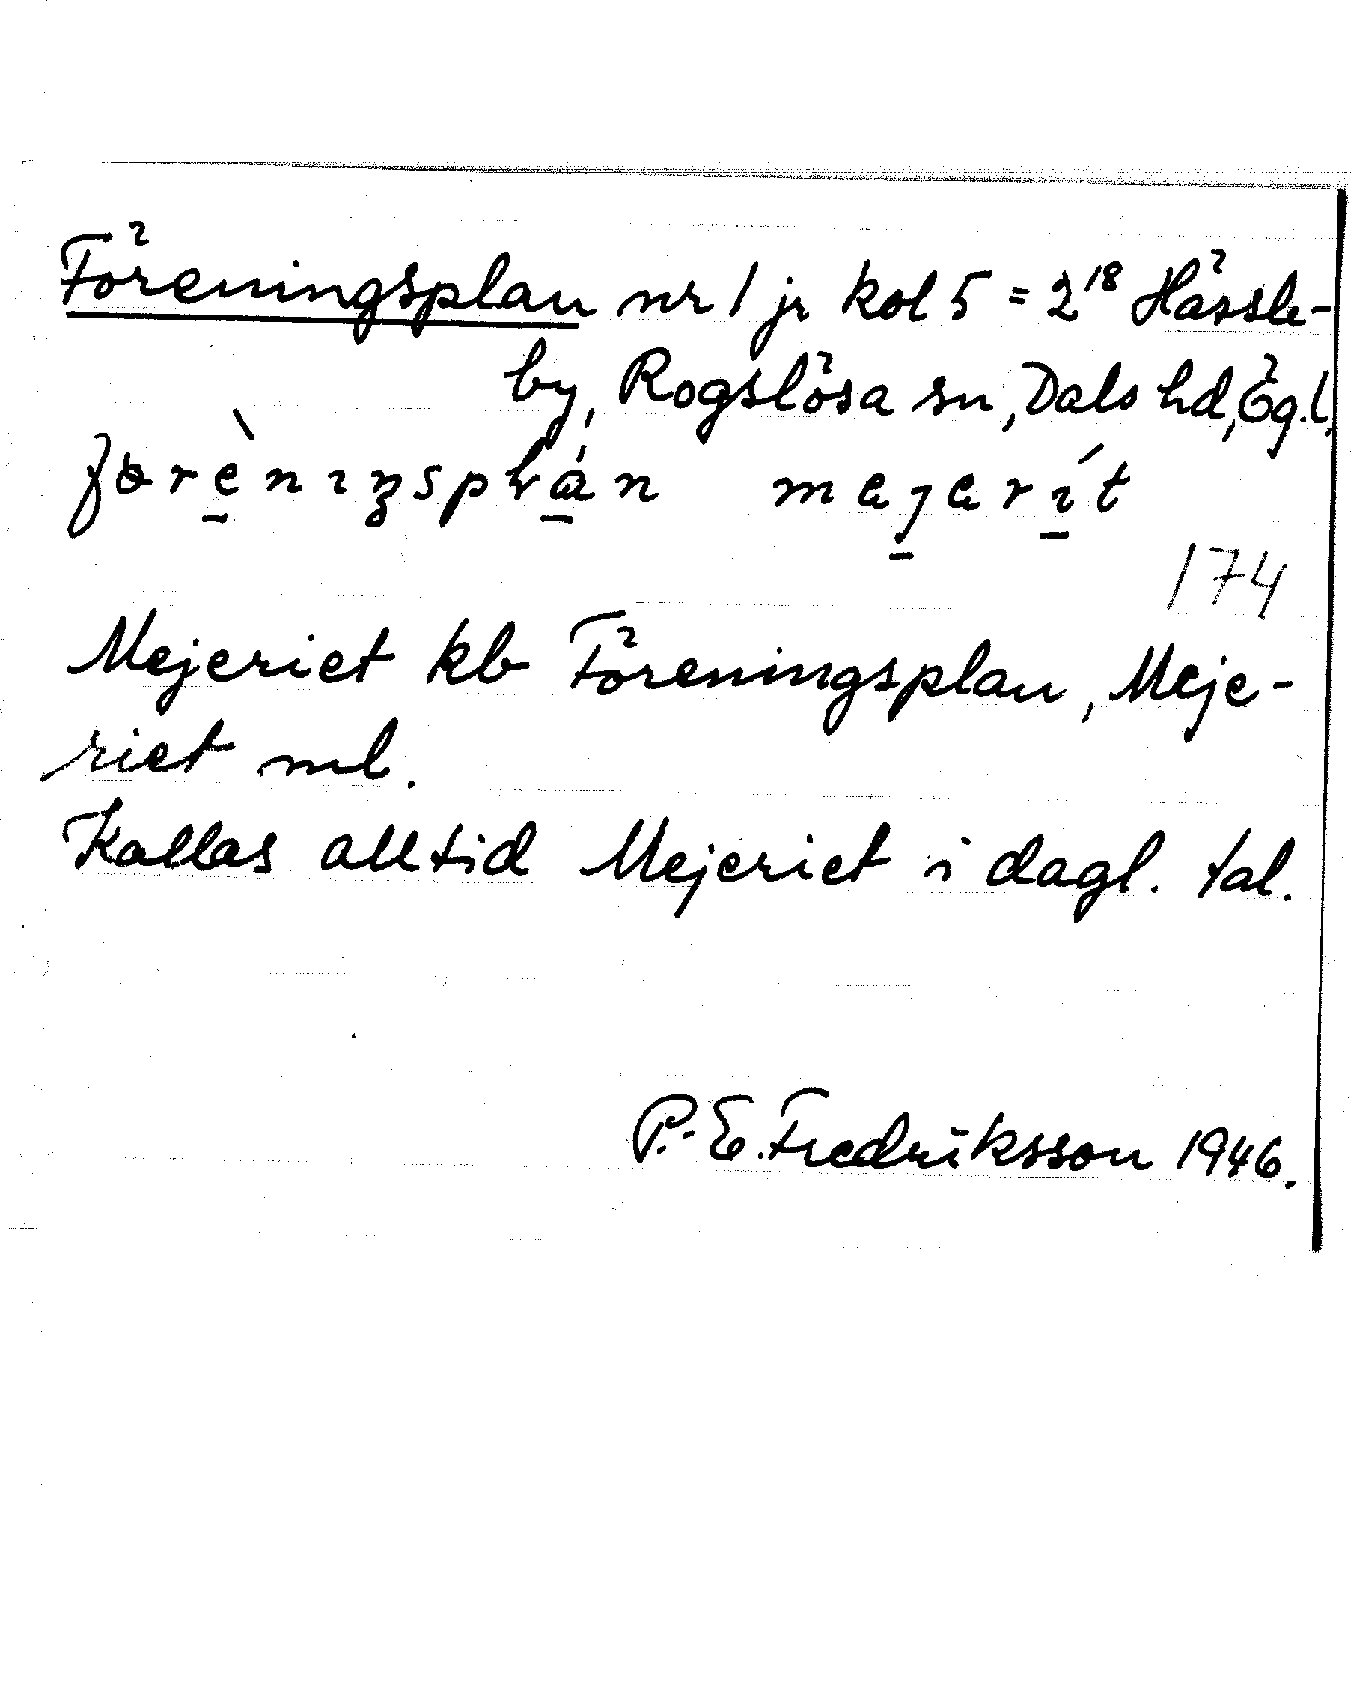 Föreningsplan nr 1 jr kol 5 = 2¹⁸ Hässle-
by, Rogslösa sn, Dals hd, Ög.l.
førèniŋsplán mejerít
174
Mejeriet kb Föreningsplan, Meje-
riet ml.
Kallas alltid Mejeriet i dagl. tal.
P.-E. Fredriksson 1946.